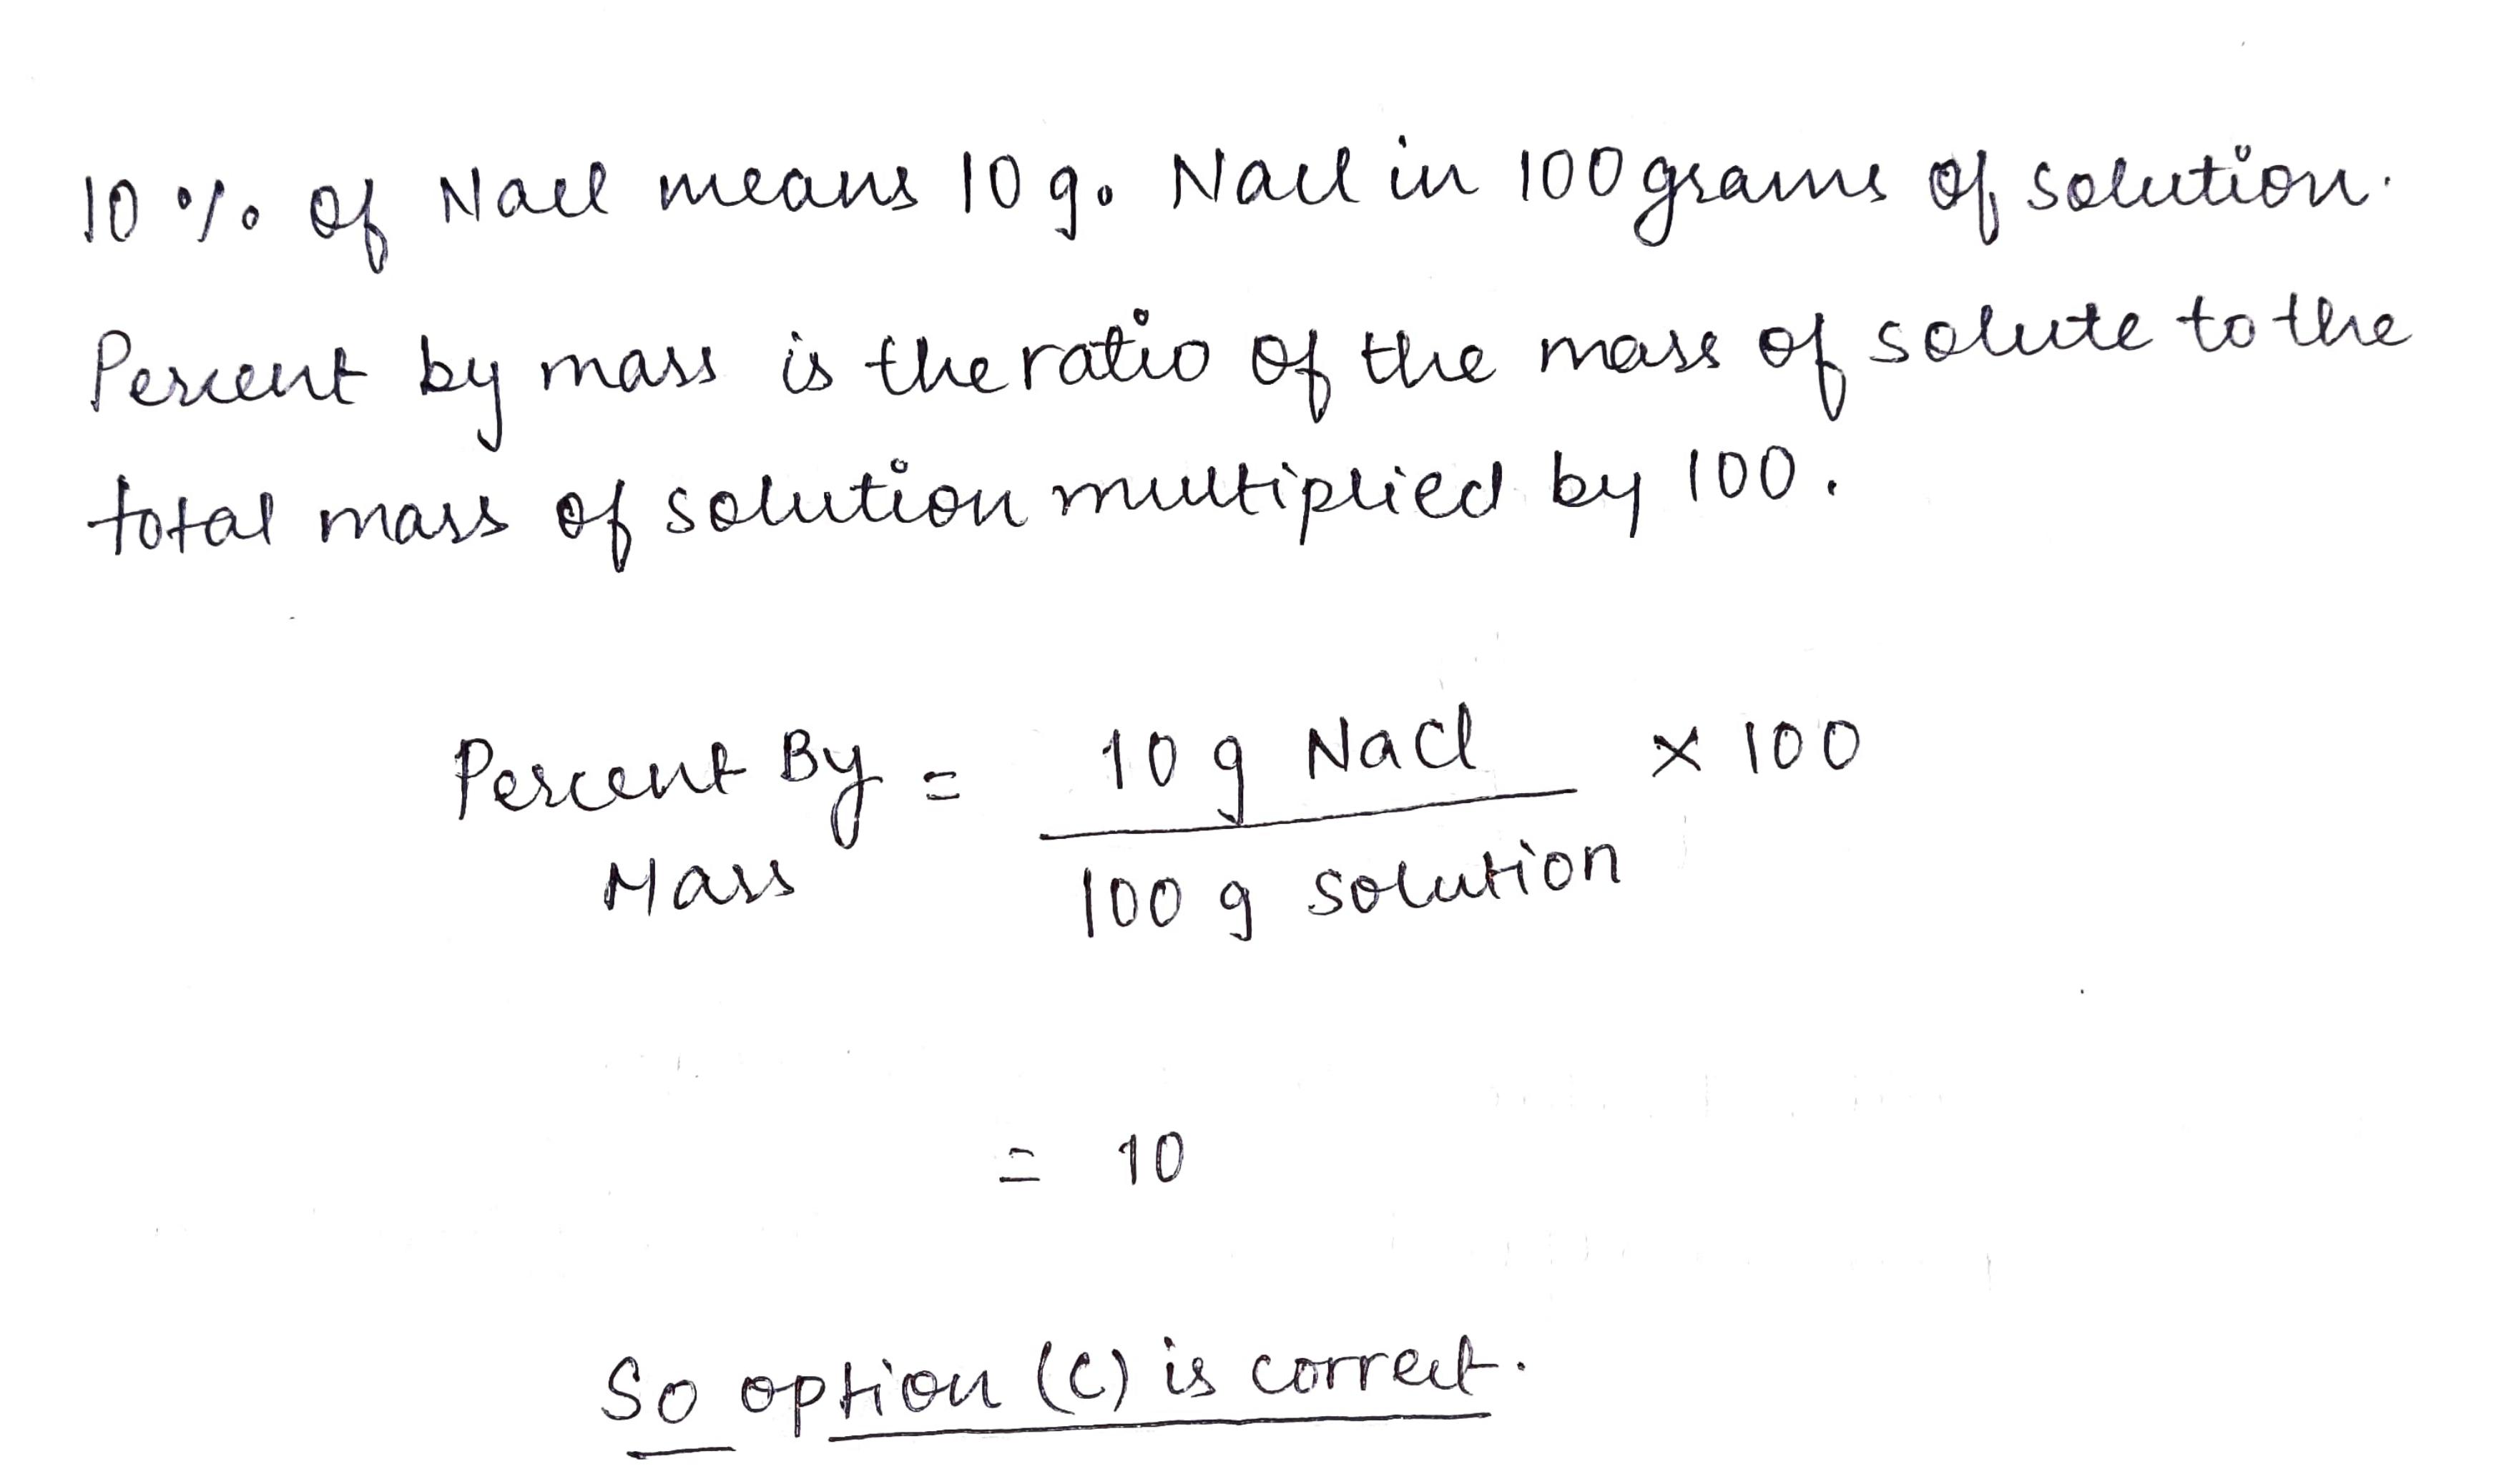 10 % of NaCl means 10 g. NaCl in 100 grams of solution.
Percent by mass is the ratio of the mass of solute to the
total mass of solution multiplied by 100.
Percent By = 10 g NaCl × 100
Mass 100 g solution
= 10
So option (C) is correct.